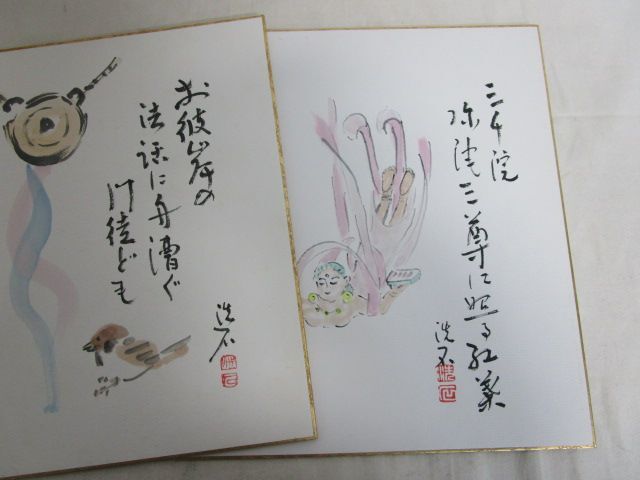 お彼岸の
法話に舟漕ぐ
門徒ども
洗石
三千院
弥陀三尊に照る紅葉
洗石